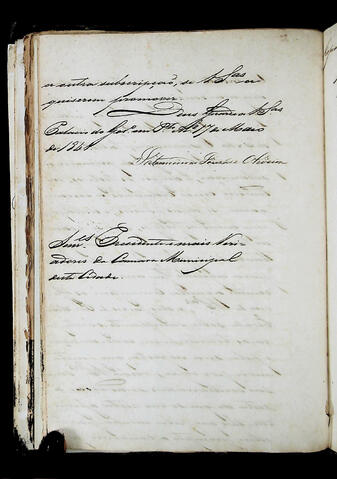 a outra subscripção, se V. Sas a
quizerem promover.
Deos Guarde a V. Sas
Palacio do Gov.º em 17 de Maio
de 184
Oliveira
Snr.es Presidente e mais Vere-
adores da Camara Municipal
desta Cidade